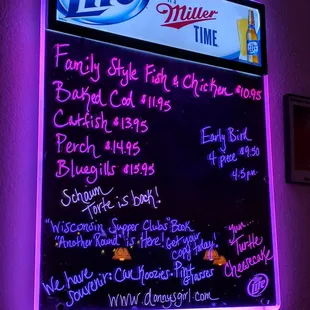 Lite
IT'S
Miller
TIME
Family Style Fish & Chicken $10.95
Baked Cod $11.95
Catfish $13.95
Perch $14.95
Bluegills $15.95
Early Bird
4 piece $9.50
4-5pm
Schaum
Torte is back!
"Wisconsin Supper Clubs" Book
"Another Round" is Here! Get your
copy today!
yum...
Turtle
Cheesecake
We have
souvenir: Can Koozies · Pint
Glasses
www.donnysgirl.com
Lite